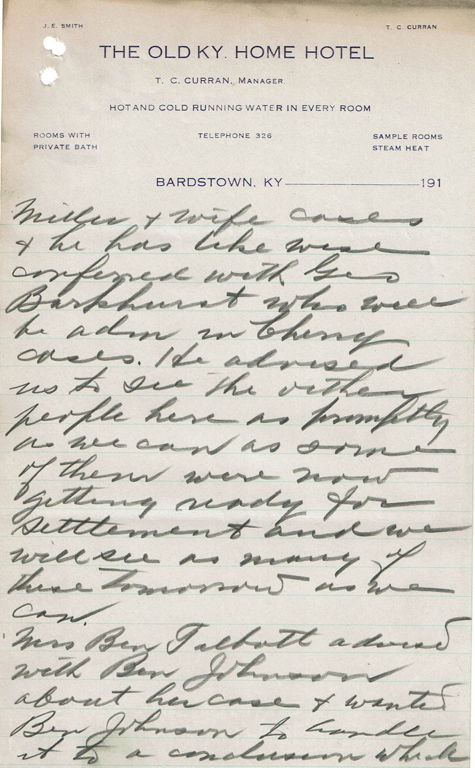 J. E. SMITH
T. C. CURRAN
THE OLD KY. HOME HOTEL
T. C. CURRAN, MANAGER
HOT AND COLD RUNNING WATER IN EVERY ROOM
ROOMS WITH
PRIVATE BATH
TELEPHONE 326
SAMPLE ROOMS
STEAM HEAT
BARDSTOWN, KY 191
Miller & wife cases
& he has like wise
conferred with Geo
Barkhurst who will
be adm in Cherry
cases. He advised
us to see the other
people here as promptly
as we can as some
of them were now
getting ready for
settlement and we
will see as many of
these tomorrow as we
can.
Mrs Ben Talbott advised
with Ben Johnson
about her case & wanted
Ben Johnson to handle
it to a conclusion which